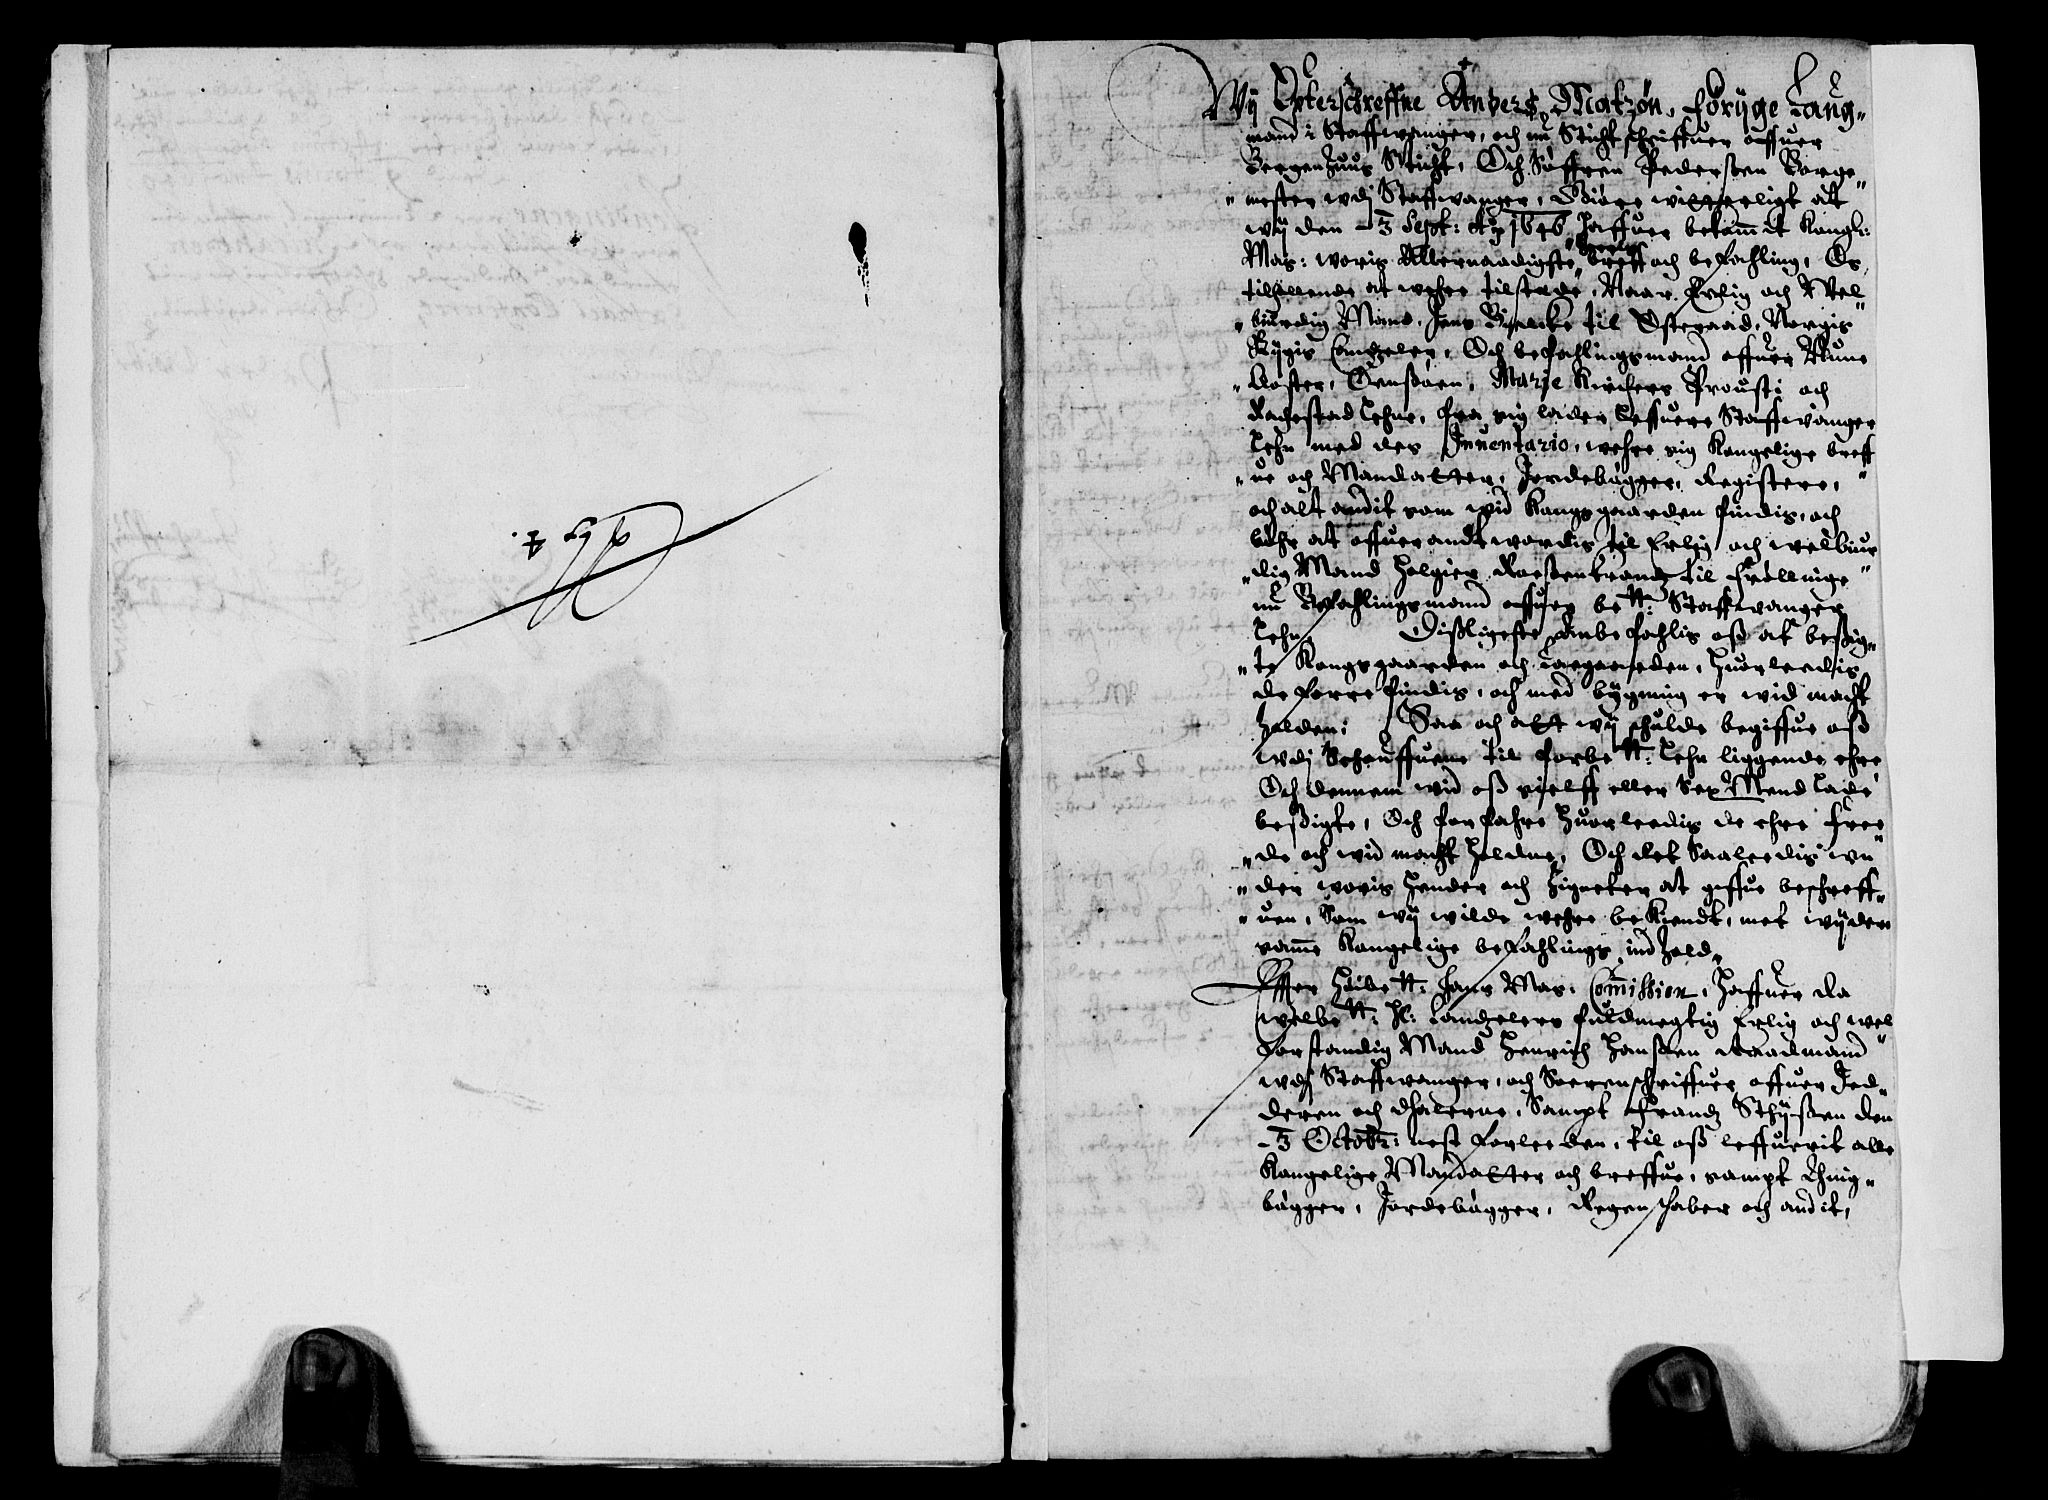 N 4.
Wÿ Epterschreffne Anders Matzøn, forige Laug-
mand i Staffwanger, och nu Sticht schriffuer offuer
Bergenhuus Sticht, Och Søffren Pedersøen Borge
mester wdj Staffwanger, Giøre witterligt at
wÿ den 3 Sept: Ao 1646 haffuer bekommit Kongl:
May: woris Allernaadigste breff och befahling, Os
tilhollende at wehre tilstede, Naar Erlig och Wel
burdig Mand, Jens Bielcke til Østeraad, Norgis
Rigis Candzeler, Och befahlingsmand offuer Nune
Closter, Ørnsøen, Marie Kirckes Prousti och
Ragestad Lehne, fra sig lader leffuere Staffwanger
Lehn med des Inuentario, wehre sig Kongelige breff
ue och Mandatter, Jordebøgger, Registere,
och alt andit som wid Kongsgaarden findis, och
bøhr at offuerandtwordis til Erlig och welbiur
dig Mand Holgier Roesenkrantz til Frøllinge
nu Befahlingsmand offuer bete: Staffwanger
Lehn. Disligeste anbefahlis oss at besig-
te Kongsgaarden och Ladegaarden, huorleedis
de forrefindis, och med bÿgning er wid macht
holden: Saa och att wÿ schulde begiffue oss
wdj Schouffuene til forbete: Lehn liggende ehre
Och dennem wid oss sielff eller Sex Mend lade
besigte, Och forfahre huorleedis de ehre free
de och wid macht holdne, Och det Saaleedis wn
der woris hender och Zigneter at giffue beschreff-
uen, Som wÿ wilde wehre bekiendt, met wÿder
samme Kongelige befahlings indhold.
Effter høibete: Hans May: Commission, haffuer da
welbete: H: Candzelers fuldmegtig Erlig och wel
forstandig Mand Henrich Hanssen Raadmand
wdj Staffwanger, och Sorenschriffuer offuer Jed-
deren och dhalerne, Sampt Frandz Sthÿssen den
3 Octobr: nest forleeden, til oss leffuerit alle
Kongelige Mandatter och breffue, sampt Thing-
bøgger, Jordebøgger, Regenschaber och andit,